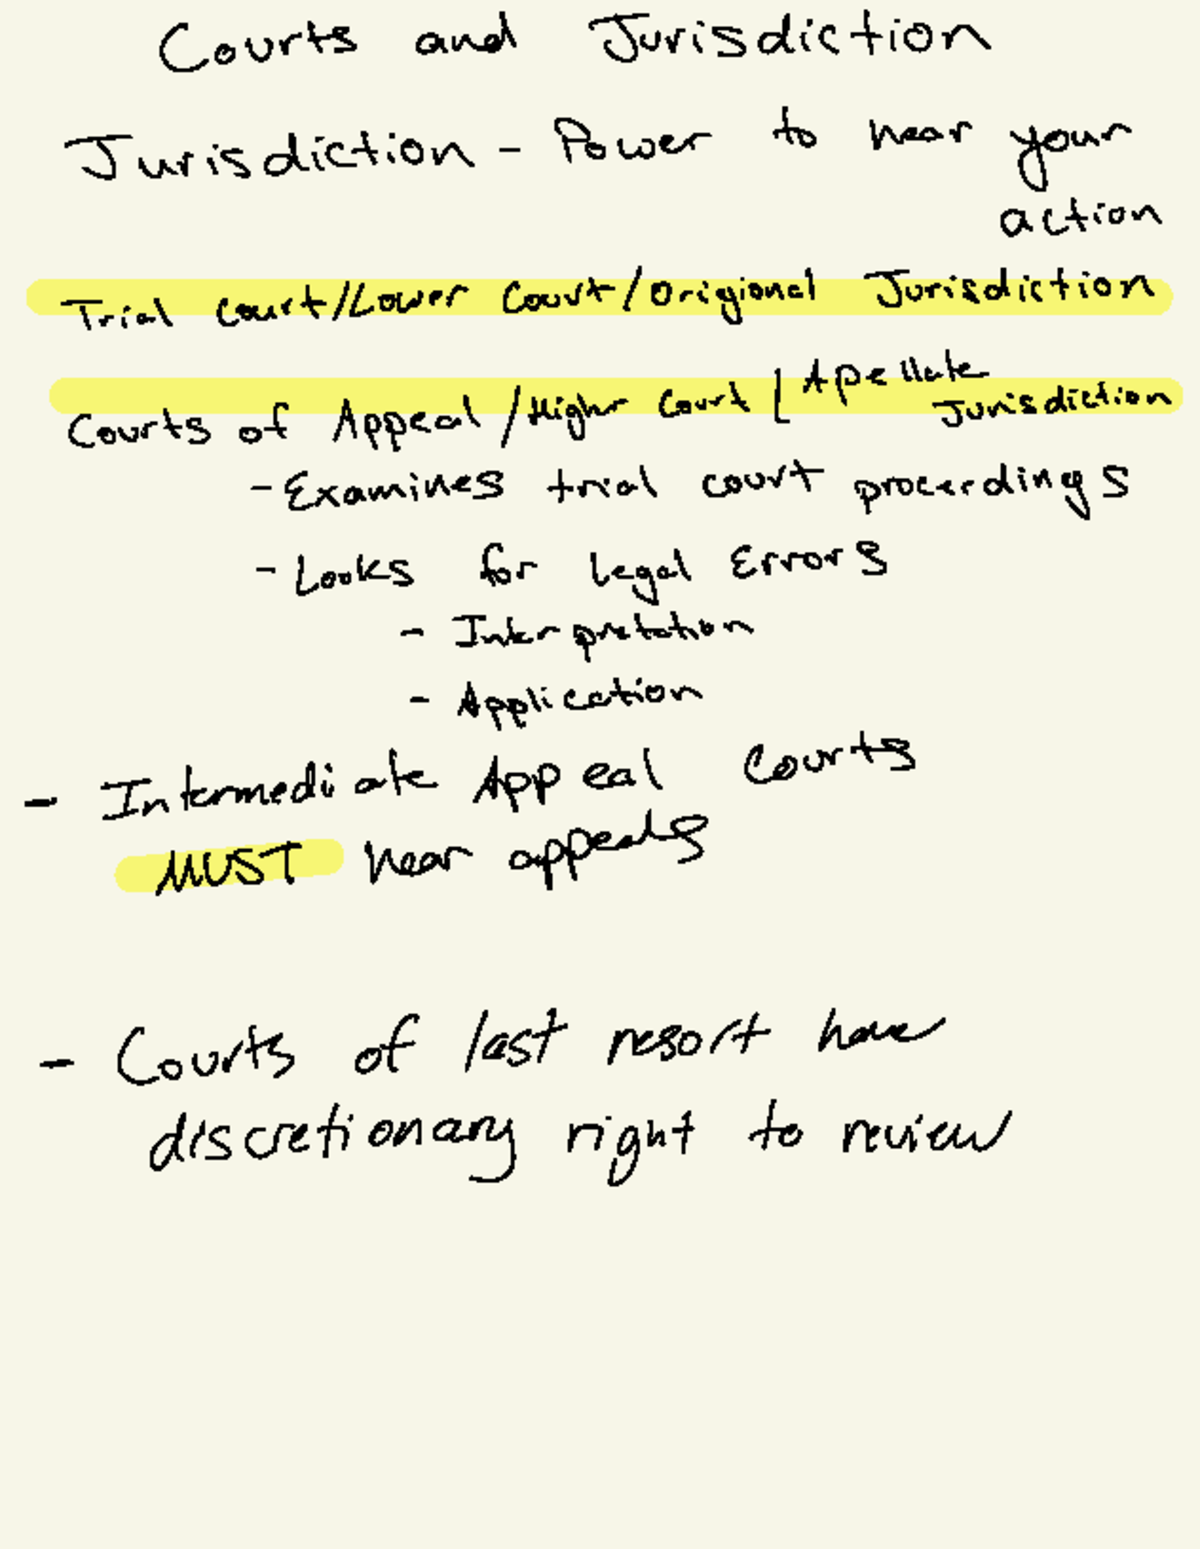 Courts and Jurisdiction
Jurisdiction - Power to hear your
action
Trial Court/Lower Court/Origional Jurisdiction
Courts of Appeal/Higher Court/Apellate
Jurisdiction
- Examines trial court proceedings
- Looks for legal Errors
- Interpretation
- Application
- Intermediate Appeal Courts
MUST hear appeals
- Courts of last resort have
discretionary right to review